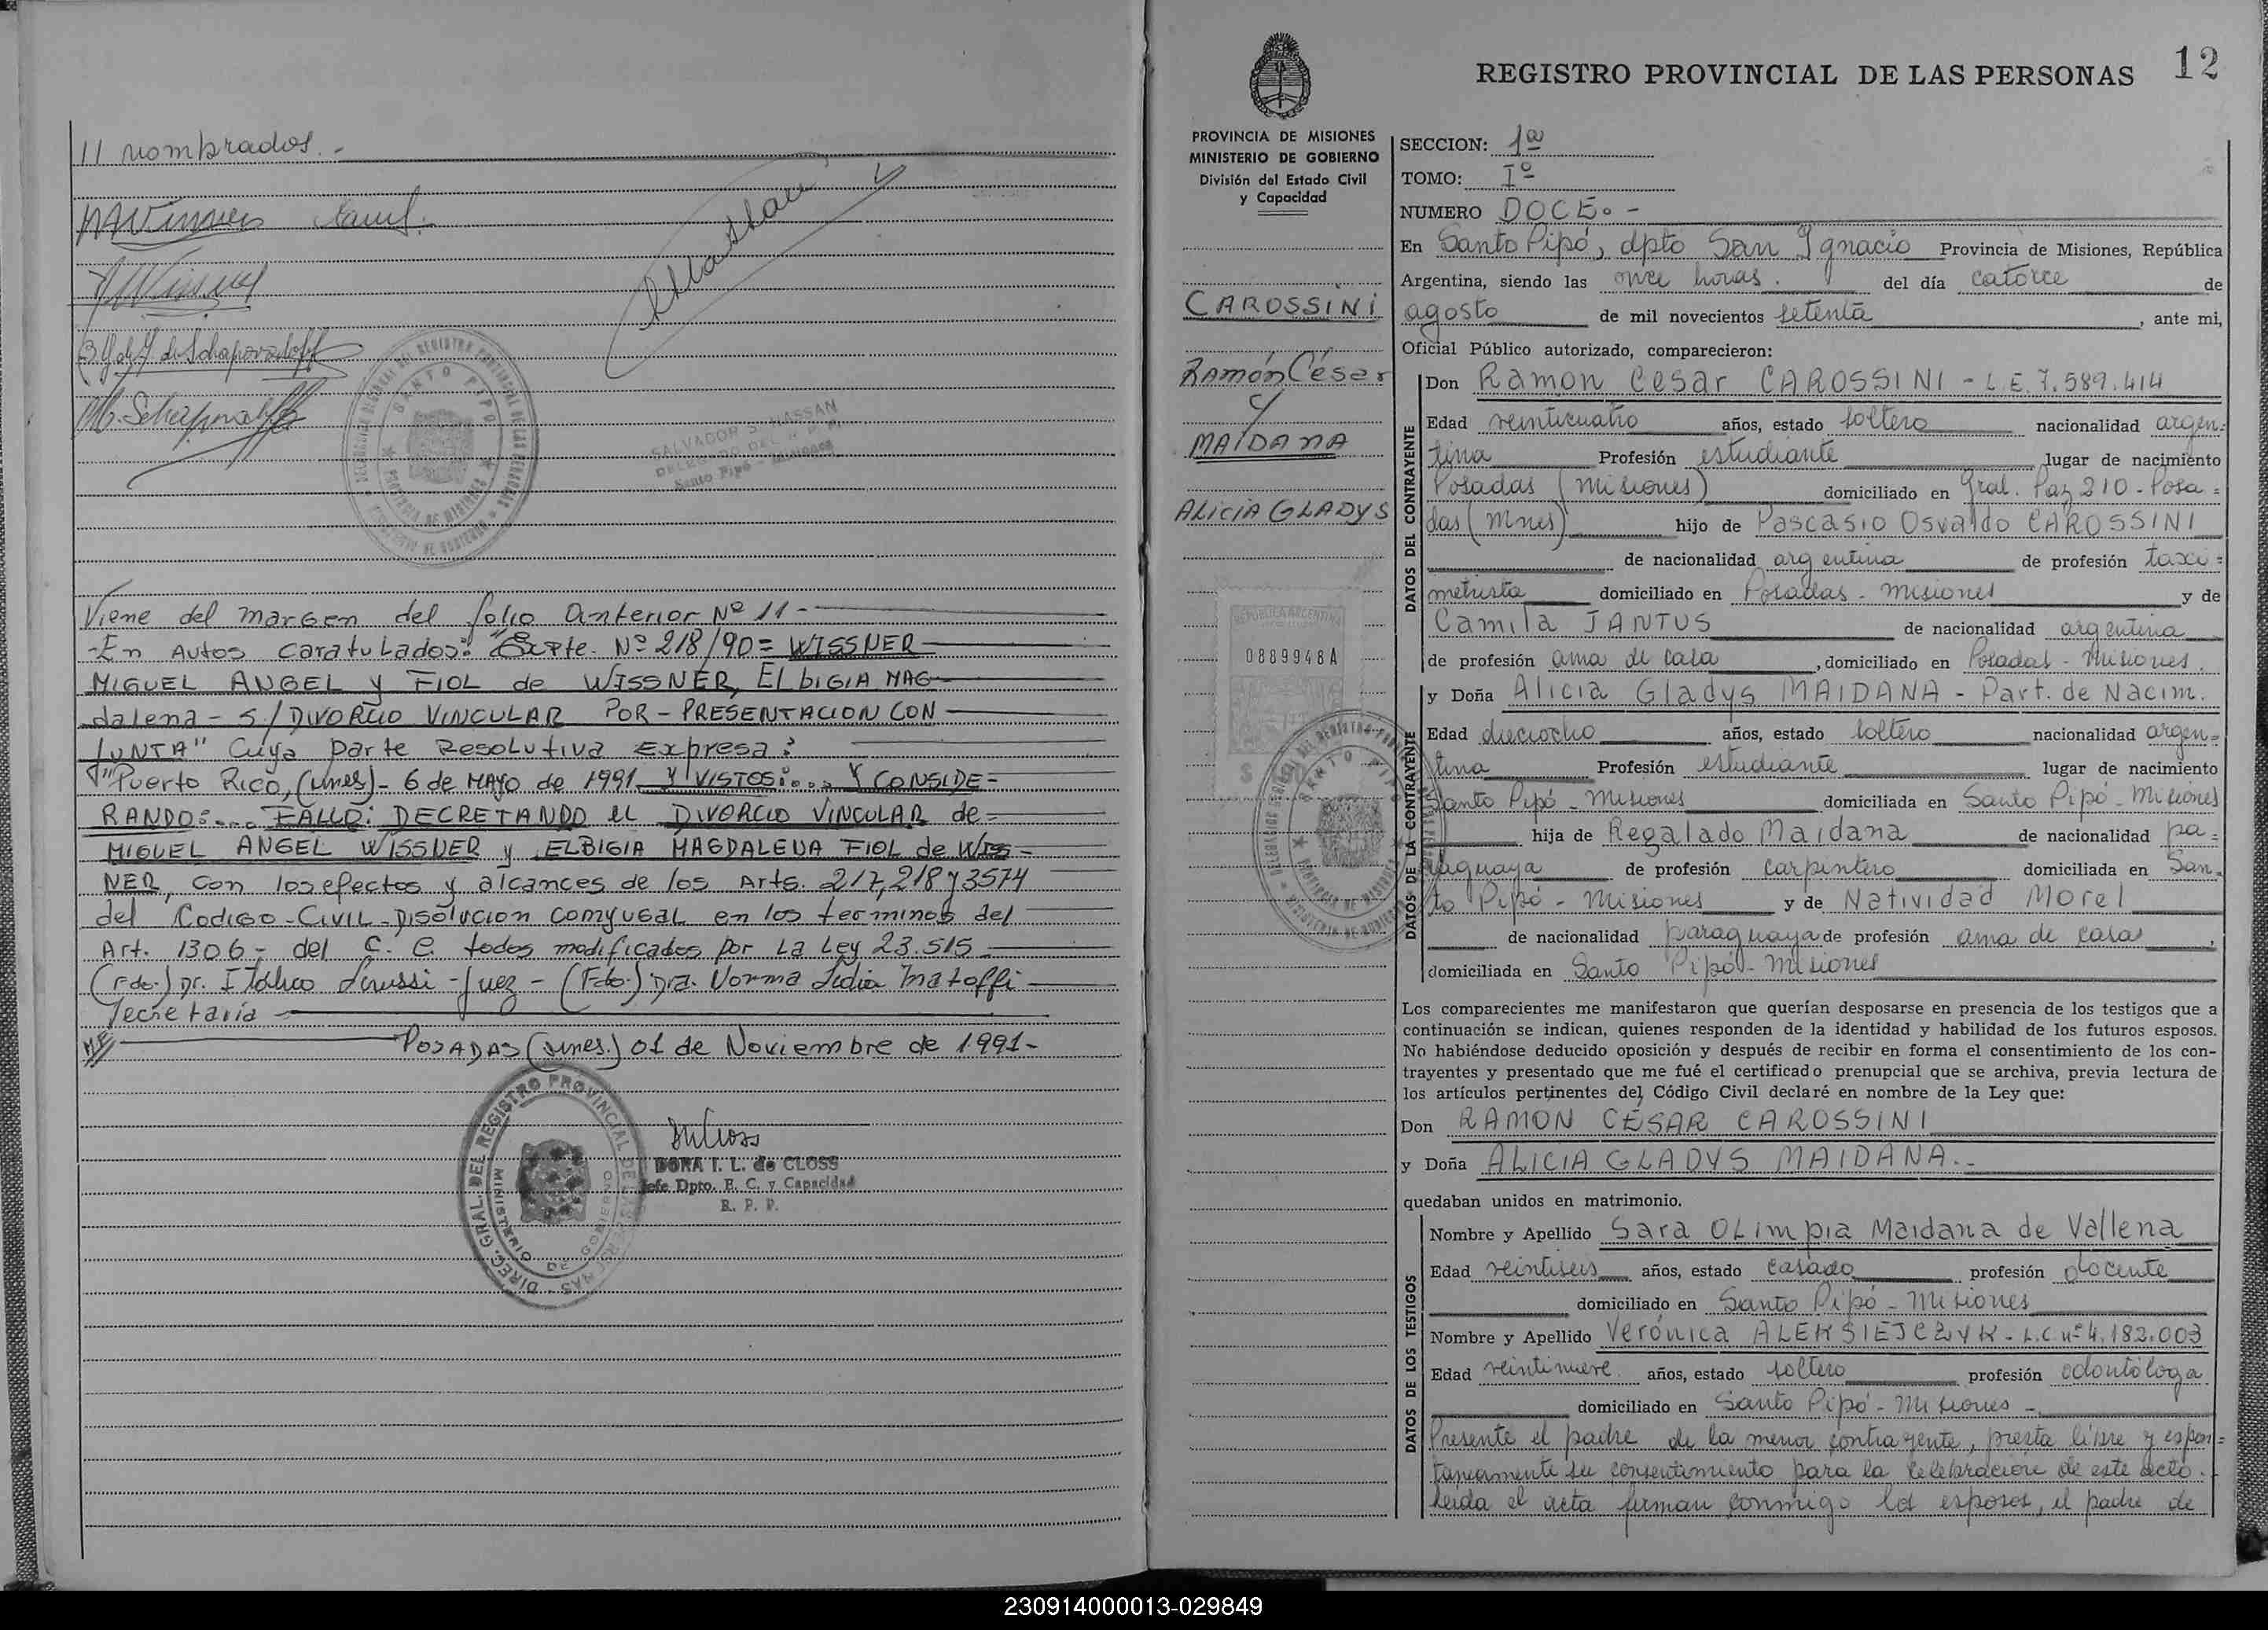 // nombrados.-
SALVADOR S. HASSAN
DELEGADO DEL R.P.P.
Santo Pipó - Misiones
SANTO PIPO
PROVINCIA DE MISIONES
Viene del margen del folio anterior Nº 11-
-En Autos caratulados: "Expte. Nº 218/90= WISSNER
MIGUEL ANGEL y FIOL de WISSNER, ELbIGIA MAG-
dalena - S/DIVORCIO VINCULAR POR - PRESENTACION CON
JUNTA" Cuya parte Resolutiva Expresa:
"Puerto Rico, (Mnes)- 6 de MAYO de 1991. Y VISTOS:... Y CONSIDE=
RANDO:... FALLO: DECRETANDO el DIVORCIO VINCULAR de=
MIGUEL ANGEL WISSNER y ELBIGIA MAGDALENA FIOL de WISS-
NER, con los efectos y alcances de los Arts. 217, 218 y 3574
del Codigo-Civil-Disolucion conyugal en los terminos del
Art. 1306- del C. C. todos modificados por La Ley 23.515
(Fdo.) Dr. Italico -Juez- (Fdo.) Dra. Norma Lidia
Secretaria
POSADAS (Mnes.) 01 de Noviembre de 1991-
DIREC. GRAL. DEL REGISTRO PROVINCIAL DE LAS PERSONAS
MINISTERIO DE GOBIERNO
DORA T. L. de CLOSS
Jefe Dpto. E. C. y Capacidad
R. P. P.
REGISTRO PROVINCIAL DE LAS PERSONAS 12
PROVINCIA DE MISIONES
MINISTERIO DE GOBIERNO
División del Estado Civil
y Capacidad
CAROSSINI
Ramón César
y
MAIDANA
ALICIA GLADYS
REPUBLICA ARGENTINA
0889948A
SANTO PIPO
SECCION: 1ª
TOMO: Iº
NUMERO DOCE.-
En Santo Pipó, dpto San Ignacio Provincia de Misiones, República
Argentina, siendo las once horas. del día catorce de
agosto de mil novecientos setenta, ante mi,
Oficial Público autorizado, comparecieron:
DATOS DEL CONTRAYENTE
Don Ramón Cesar CAROSSINI - L.E. 7.589.414
Edad veinticuatro años, estado soltero nacionalidad argen=
tina Profesión estudiante lugar de nacimiento
Posadas (Misiones) domiciliado en Gral. Paz 210 - Posa=
das (Mnes) hijo de Pascasio Osvaldo CAROSSINI
de nacionalidad argentina de profesión taxi=
metrista domiciliado en Posadas - Misiones y de
Camila JANTUS de nacionalidad argentina
de profesión ama de casa, domiciliado en Posadas - Misiones.
DATOS DE LA CONTRAYENTE
y Doña Alicia Gladys MAIDANA - Part. de Nacim.
Edad dieciocho años, estado soltero nacionalidad argen=
tina Profesión estudiante lugar de nacimiento
Santo Pipó - Misiones domiciliada en Santo Pipó - Misiones
hija de Regalado Maidana de nacionalidad pa=
raguaya de profesión carpintero domiciliada en San=
to Pipó - Misiones y de Natividad Morel
de nacionalidad paraguaya de profesión ama de casa,
domiciliada en Santo Pipó - Misiones
Los comparecientes me manifestaron que querían desposarse en presencia de los testigos que a
continuación se indican, quienes responden de la identidad y habilidad de los futuros esposos.
No habiéndose deducido oposición y después de recibir en forma el consentimiento de los con-
trayentes y presentado que me fué el certificado prenupcial que se archiva, previa lectura de
los artículos pertinentes del Código Civil declaré en nombre de la Ley que:
Don RAMON CÉSAR CAROSSINI
y Doña ALICIA GLADYS MAIDANA.-
quedaban unidos en matrimonio.
DATOS DE LOS TESTIGOS
Nombre y Apellido Sara OLimpia Maidana de Vallena
Edad veintiseis años, estado casado profesión docente
domiciliado en Santo Pipó - Misiones
Nombre y Apellido Verónica ALEKSIEJCZYK - L.C. nº 4.182.003
Edad veintinueve años, estado soltero profesión odontóloga
domiciliado en Santo Pipó - Misiones -
Presente el padre de la menor contrayente, presta libre y espon=
taneamente su consentimiento para la celebración de este acto.
Leída el acta firman conmigo los esposos, el padre de
230914000013-029849